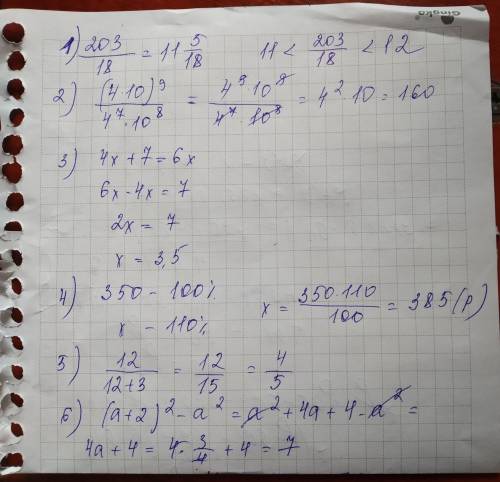 Gingko
1) 203/18 = 11 5/18    11 < 203/18 < 12
2) (4·10)⁹/(4⁷·10⁸) = (4⁹·10⁹)/(4⁷·10⁸) = 4²·10 = 160
3) 4x + 7 = 6x
6x - 4x = 7
2x = 7
x = 3,5
4) 350 - 100%
x - 110%    x = (350·110)/100 = 385 (р)
5) 12/(12+3) = 12/15 = 4/5
6) (a+2)² - a² = a² + 4a + 4 - a² =
4a + 4 = 4·3/4 + 4 = 7